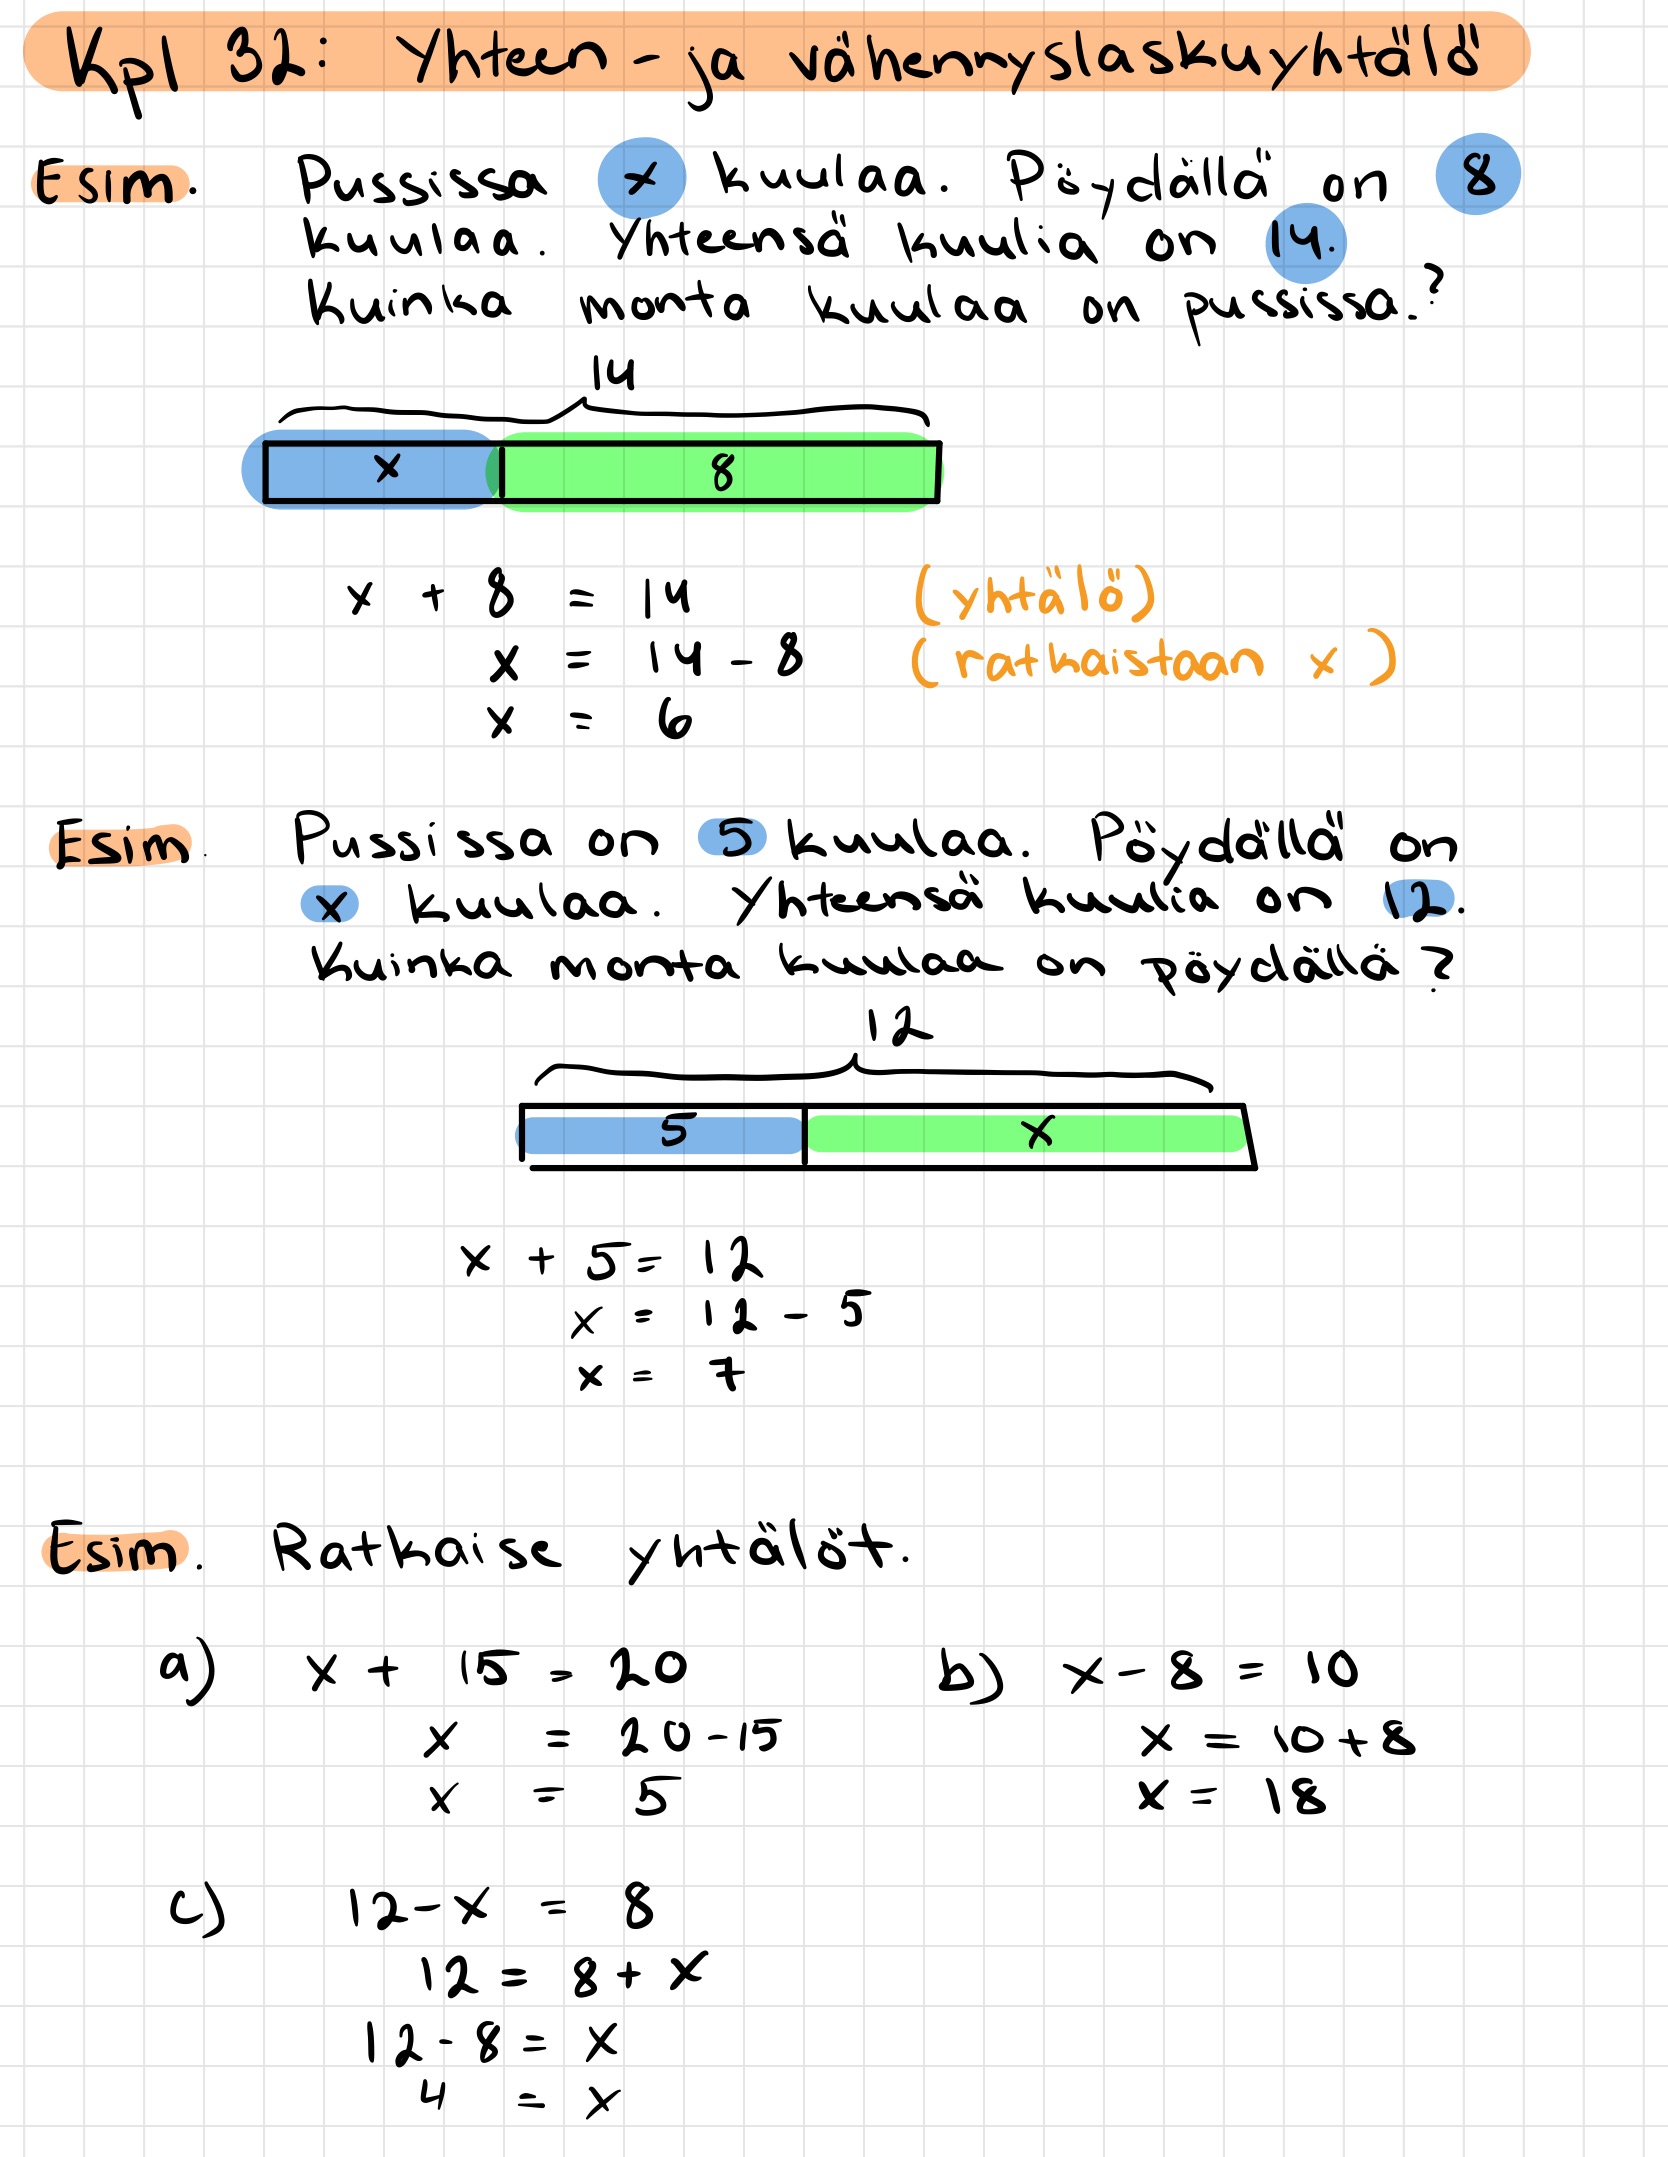 Kpl 32: Yhteen- ja vähennyslaskuyhtälö
Esim. Pussissa x kuulaa. Pöydällä on 8
kuulaa. Yhteensä kuulia on 14.
Kuinka monta kuulaa on pussissa.?
14
x 8
x + 8 = 14 (yhtälö)
x = 14 - 8 (ratkaistaan x)
x = 6
Esim. Pussissa on 5 kuulaa. Pöydällä on
x kuulaa. Yhteensä kuulia on 12.
Kuinka monta kuulaa on pöydällä?
12
5 x
x + 5 = 12
x = 12 - 5
x = 7
Esim. Ratkaise yhtälöt.
a) x + 15 = 20 b) x - 8 = 10
x = 20 - 15 x = 10 + 8
x = 5 x = 18
c) 12 - x = 8
12 = 8 + x
12 - 8 = x
4 = x